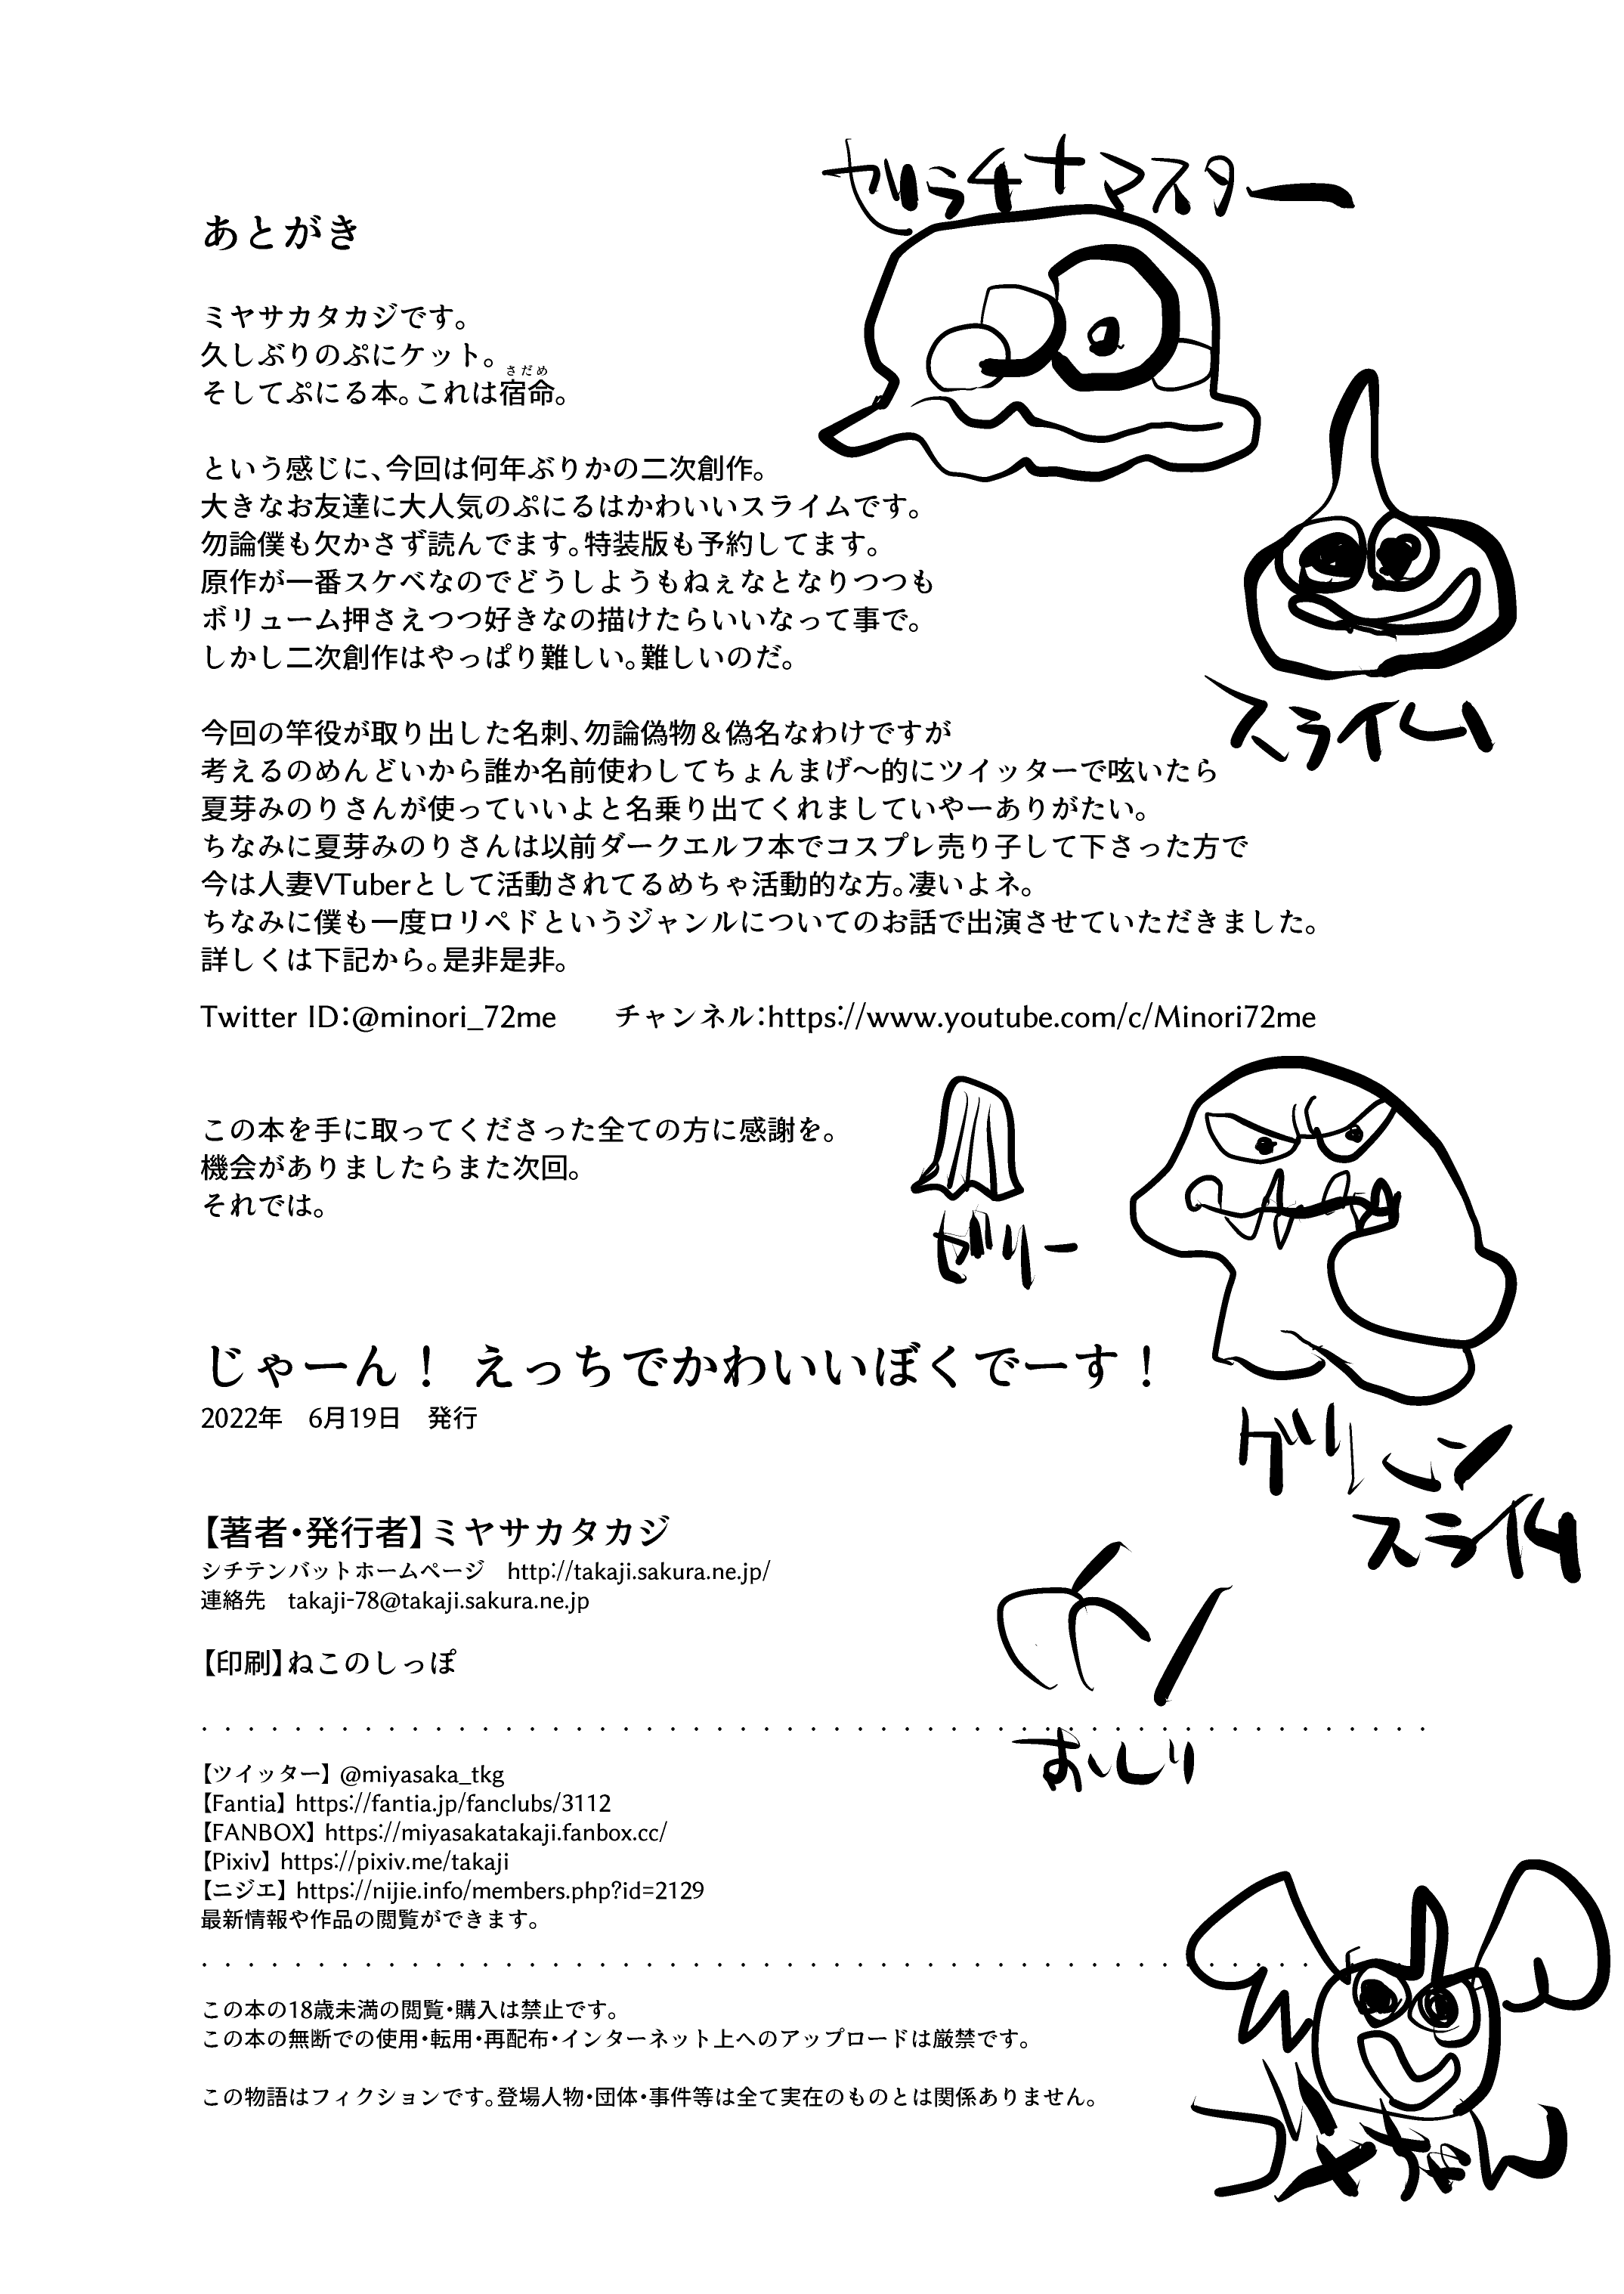 あとがき
ミヤサカタカジです。
久しぶりのぷにケット。
さだめ
そしてぷにる本。これは宿命。
という感じに、今回は何年ぶりかの二次創作。
大きなお友達に大人気のぷにるはかわいいスライムです。
勿論僕も欠かさず読んでます。特装版も予約してます。
原作が一番スケベなのでどうしようもねぇなとなりつつも
ボリューム押さえつつ好きなの描けたらいいなって事で。
しかし二次創作はやっぱり難しい。難しいのだ。
今回の竿役が取り出した名刺、勿論偽物＆偽名なわけですが
考えるのめんどいから誰か名前使わしてちょんまげ〜的にツイッターで呟いたら
夏芽みのりさんが使っていいよと名乗り出てくれましていやーありがたい。
ちなみに夏芽みのりさんは以前ダークエルフ本でコスプレ売り子して下さった方で
今は人妻VTuberとして活動されてるめちゃ活動的な方。凄いよネ。
ちなみに僕も一度ロリペドというジャンルについてのお話で出演させていただきました。
詳しくは下記から。是非是非。
Twitter ID：@minori_72me　　チャンネル：https://www.youtube.com/c/Minori72me
この本を手に取ってくださった全ての方に感謝を。
機会がありましたらまた次回。
それでは。
じゃーん！ えっちでかわいいぼくでーす！
2022年　6月19日　発行
【著者・発行者】ミヤサカタカジ
シチテンバットホームページ　http://takaji.sakura.ne.jp/
連絡先　takaji-78@takaji.sakura.ne.jp
【印刷】ねこのしっぽ
【ツイッター】@miyasaka_tkg
【Fantia】https://fantia.jp/fanclubs/3112
【FANBOX】https://miyasakatakaji.fanbox.cc/
【Pixiv】https://pixiv.me/takaji
【ニジエ】https://nijie.info/members.php?id=2129
最新情報や作品の閲覧ができます。
この本の18歳未満の閲覧・購入は禁止です。
この本の無断での使用・転用・再配布・インターネット上へのアップロードは厳禁です。
この物語はフィクションです。登場人物・団体・事件等は全て実在のものとは関係ありません。
ゼラチナマスター
スライム
ゼリー
グリーン
スライム
おしり
ゴメちゃん